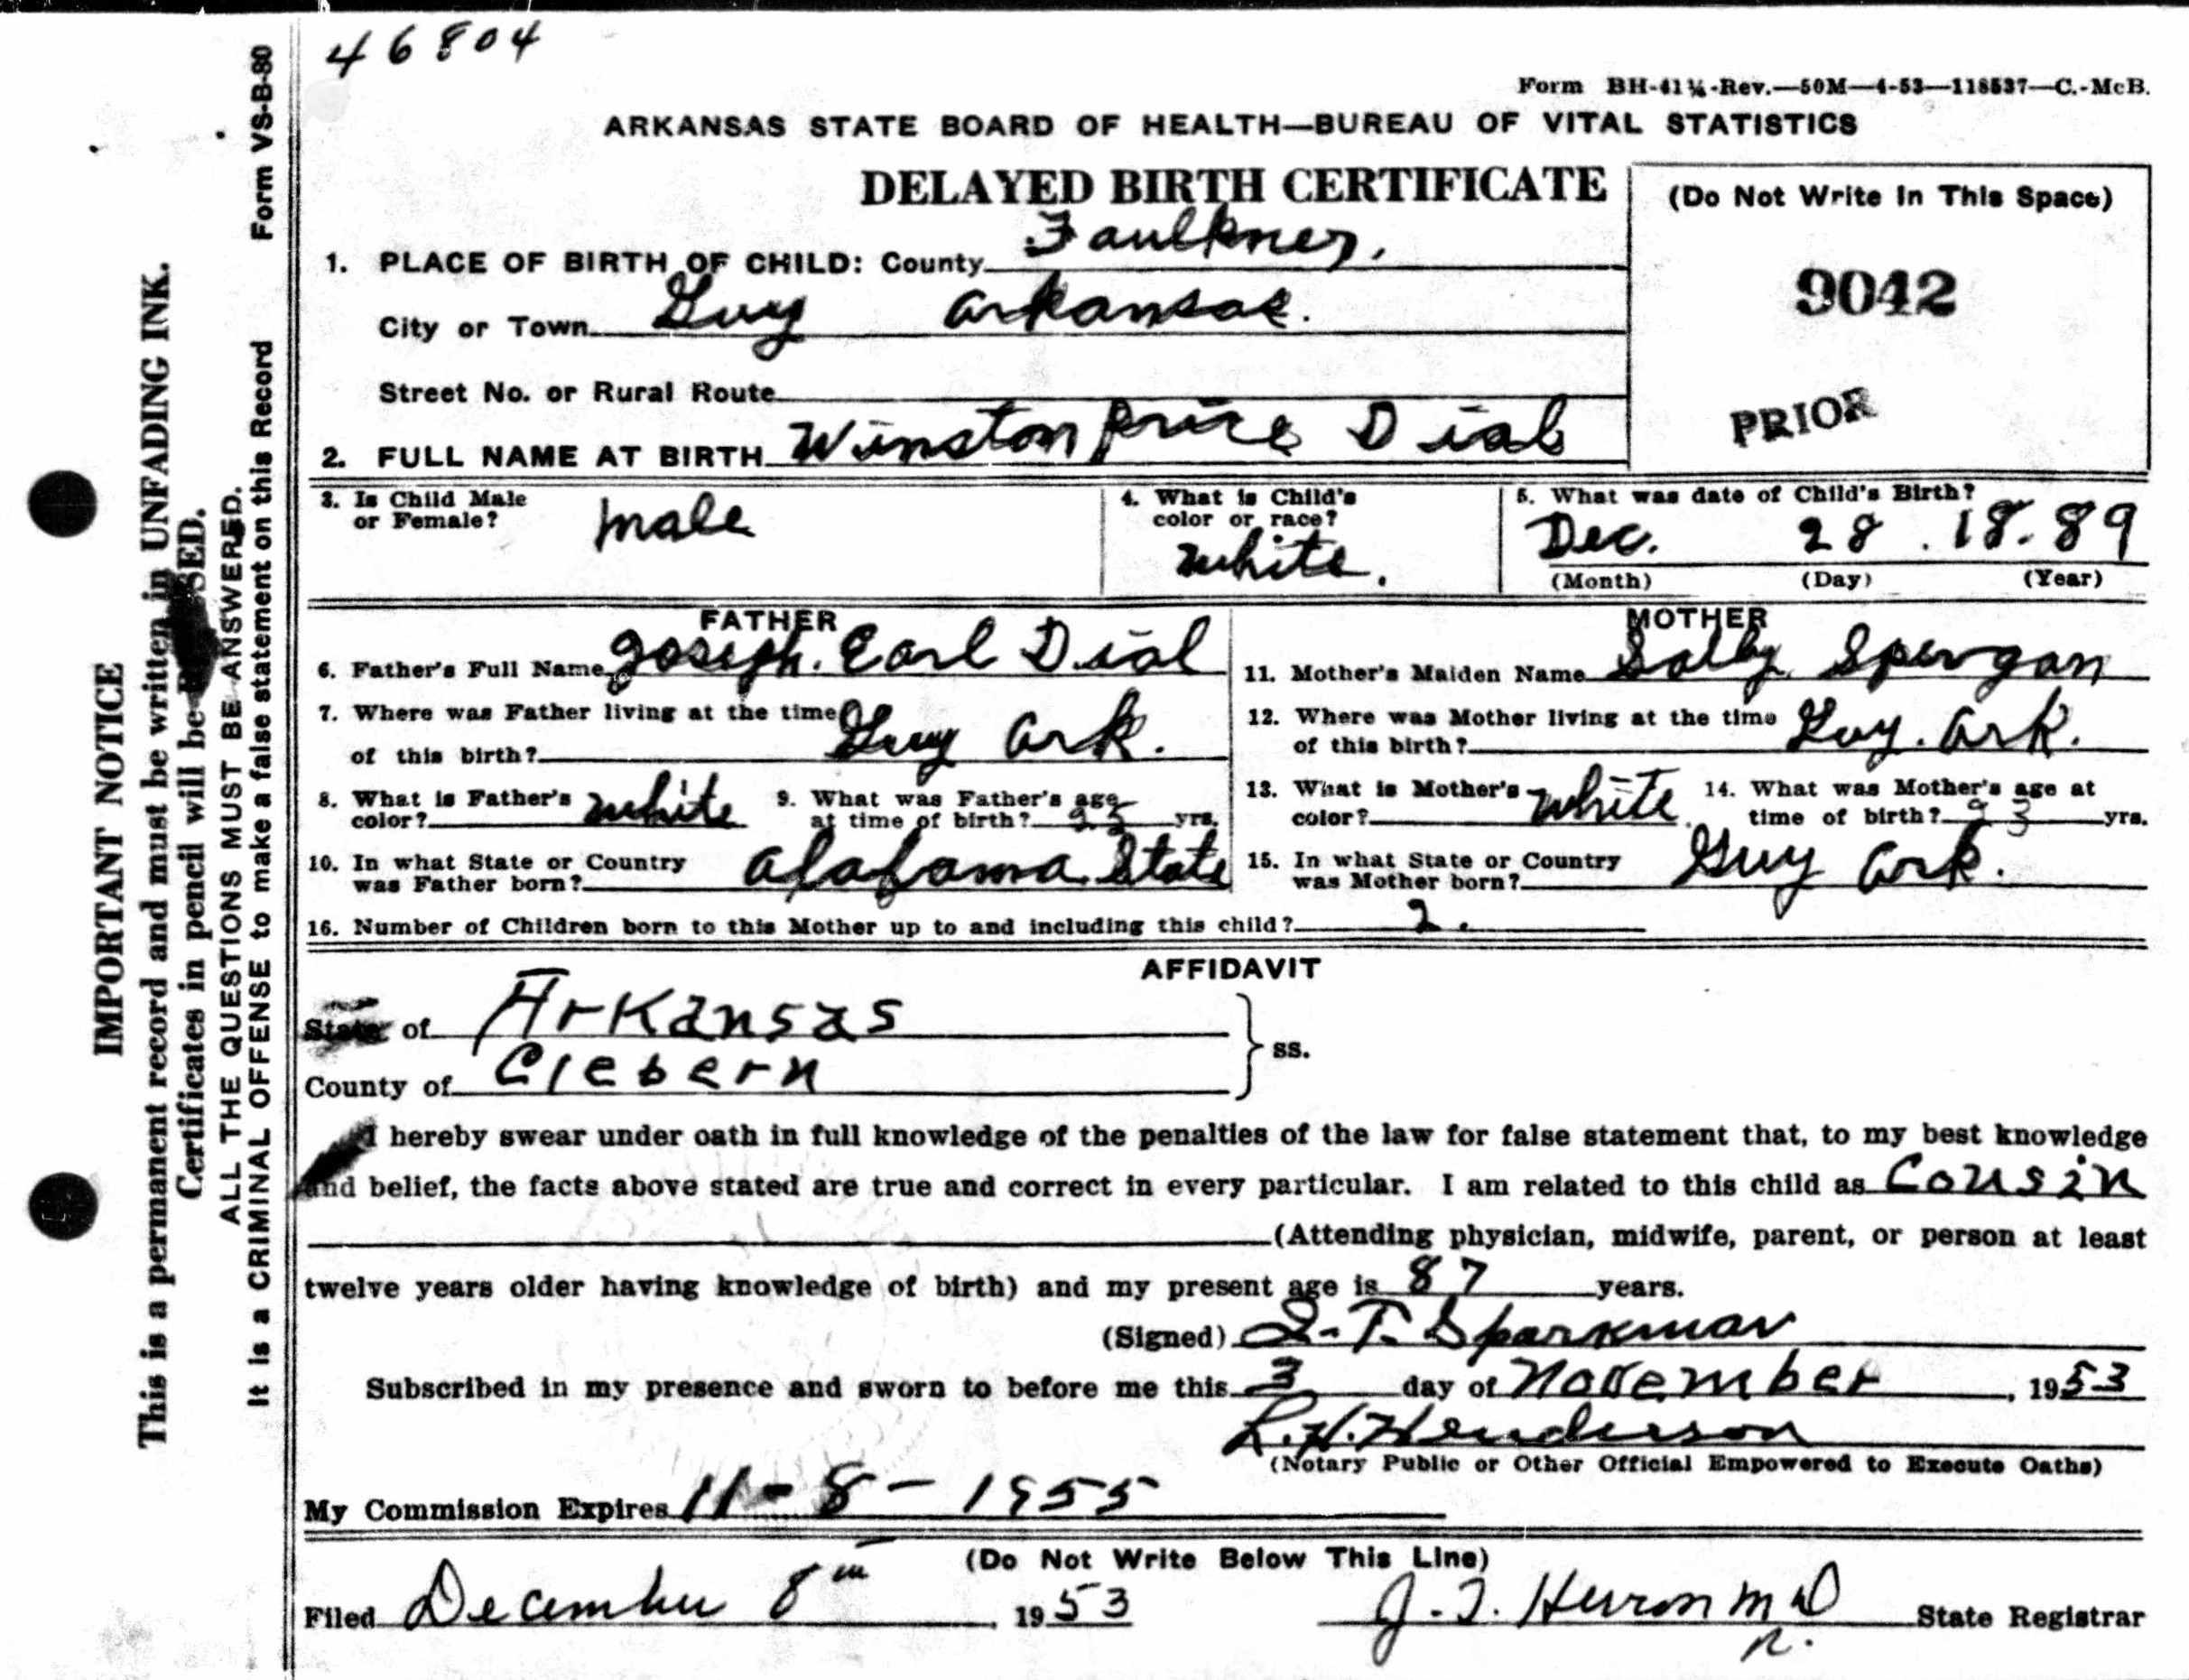 46804
Form BH-41¼-Rev.—50M—4-53—118537—C.-McB.
ARKANSAS STATE BOARD OF HEALTH—BUREAU OF VITAL STATISTICS
DELAYED BIRTH CERTIFICATE
(Do Not Write In This Space)
9042
PRIOR
1. PLACE OF BIRTH OF CHILD: County Faulkner,
City or Town Guy Arkansas.
Street No. or Rural Route
2. FULL NAME AT BIRTH Winston Price Dial
3. Is Child Male or Female? male
4. What is Child's color or race? white.
5. What was date of Child's Birth? Dec. 28. 18.89
(Month) (Day) (Year)
FATHER
6. Father's Full Name Joseph. Earl Dial
7. Where was Father living at the time of this birth? Guy Ark.
8. What is Father's color? white
9. What was Father's age at time of birth? yrs.
10. In what State or Country was Father born? Alabama State
MOTHER
11. Mother's Maiden Name Sally Spergan
12. Where was Mother living at the time of this birth? Guy. Ark.
13. What is Mother's color? white
14. What was Mother's age at time of birth? yrs.
15. In what State or Country was Mother born? Guy Ark.
16. Number of Children born to this Mother up to and including this child? 2.
AFFIDAVIT
State of Arkansas
County of Clebern
ss.
I hereby swear under oath in full knowledge of the penalties of the law for false statement that, to my best knowledge
and belief, the facts above stated are true and correct in every particular. I am related to this child as Cousin
(Attending physician, midwife, parent, or person at least
twelve years older having knowledge of birth) and my present age is 87 years.
(Signed) T. Sparkman
Subscribed in my presence and sworn to before me this 3 day of November, 1953
L.H. Henderson
(Notary Public or Other Official Empowered to Execute Oaths)
My Commission Expires 11-8-1955
(Do Not Write Below This Line)
Filed December 8th, 1953 J. T. Herron MD State Registrar
R.
Form VS-B-80
IMPORTANT NOTICE
This is a permanent record and must be written in UNFADING INK.
Certificates in pencil will be
ALL THE QUESTIONS MUST BE ANSWERED.
It is a CRIMINAL OFFENSE to make a false statement on this Record